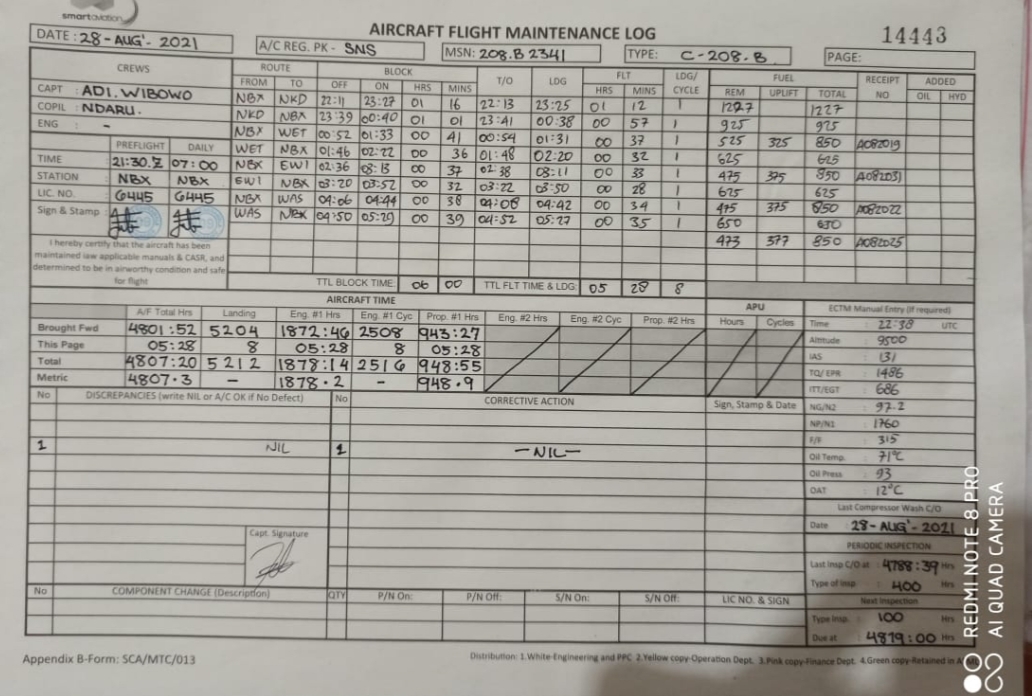 smartaviation
AIRCRAFT FLIGHT MAINTENANCE LOG
14443
DATE : 28-AUG'-2021
A/C REG. PK - SNS
MSN: 208.B 2341
TYPE: C-208.B
PAGE:
CREWS
ROUTE BLOCK T/O LDG FLT LDG/ CYCLE FUEL RECEIPT NO ADDED
FROM TO OFF ON HRS MINS HRS MINS REM UPLIFT TOTAL OIL HYD
CAPT : ADI. WIBOWO
COPIL : NDARU.
ENG : -
NBX NKD 22:11 23:27 01 16 22:13 23:25 01 12 1 1227 1227
NKD NBX 23:39 00:40 01 01 23:41 00:38 00 57 1 925 925
NBX WET 00:52 01:33 00 41 00:54 01:31 00 37 1 525 325 850 A082019
WET NBX 01:46 02:22 00 36 01:48 02:20 00 32 1 625 625
NBX EWI 02:36 03:13 00 37 02:38 03:11 00 33 1 475 375 850 A082031
EWI NBX 03:20 03:52 00 32 03:22 03:50 00 28 1 625 625
NBX WAS 04:06 04:44 00 38 04:08 04:42 00 34 1 475 375 850 A082022
WAS NBX 04:50 05:29 00 39 04:52 05:27 00 35 1 650 650
473 377 850 A082025
PREFLIGHT DAILY
TIME 21:30.Z 07:00
STATION NBX NBX
LIC. NO. 6445 6445
Sign & Stamp
I hereby certify that the aircraft has been
maintained law applicable manuals & CASR, and
determined to be in airworthy condition and safe
for flight
TTL BLOCK TIME: 06 00 TTL FLT TIME & LDG: 05 28 8
AIRCRAFT TIME
A/F Total Hrs Landing Eng. #1 Hrs Eng. #1 Cyc Prop. #1 Hrs Eng. #2 Hrs Eng. #2 Cyc Prop. #2 Hrs
APU
Hours Cycles
Brought Fwd 4801:52 5204 1872:46 2508 943:27
This Page 05:28 8 05:28 8 05:28
Total 4807:20 5212 1878:14 2516 948:55
Metric 4807.3 - 1878.2 - 948.9
ECTM Manual Entry (if required)
Time : 22:38 UTC
Altitude : 9500
IAS : 131
TQ/ EPR : 1486
ITT/EGT : 686
NG/N2 : 97.2
NP/N1 : 1760
F/F : 315
Oil Temp. : 71°C
Oil Press. : 93
OAT : 12°C
Last Compressor Wash C/O
Date : 28-AUG'-2021
PERIODIC INSPECTION
Last Insp C/O at : 4788:39 Hrs
Type of Insp. : 400 Hrs
Next Inspection
Type Insp. : 100 Hrs
Due at : 4879:00 Hrs
No DISCREPANCIES (write NIL or A/C OK if No Defect) No CORRECTIVE ACTION Sign, Stamp & Date
1 NIL 1 -NIL-
Capt. Signature
No COMPONENT CHANGE (Description) QTY P/N On: P/N Off: S/N On: S/N Off: LIC NO. & SIGN
Appendix B-Form: SCA/MTC/013
Distribution: 1.White-Engineering and PPC 2.Yellow copy-Operation Dept. 3.Pink copy-Finance Dept. 4.Green copy-Retained in
REDMI NOTE 8 PRO
AI QUAD CAMERA